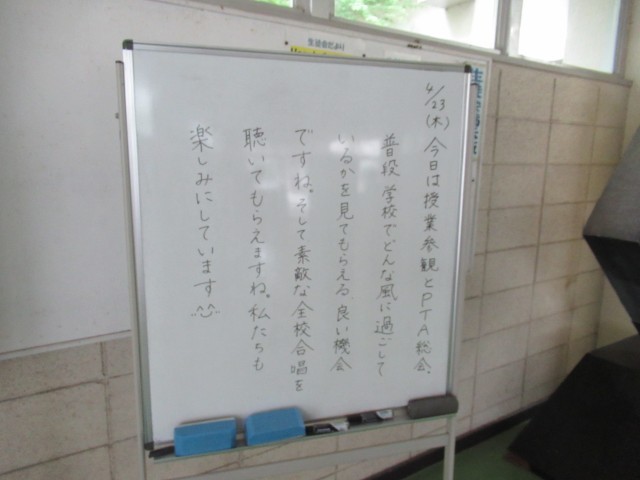 4/23(木) 今日は授業参観とPTA総会。
普段 学校でどんな風に過ごして
いるかを見てもらえる、良い機会
ですね。そして素敵な全校合唱を
聴いてもらえますね。私たちも
楽しみにしています
生徒会より